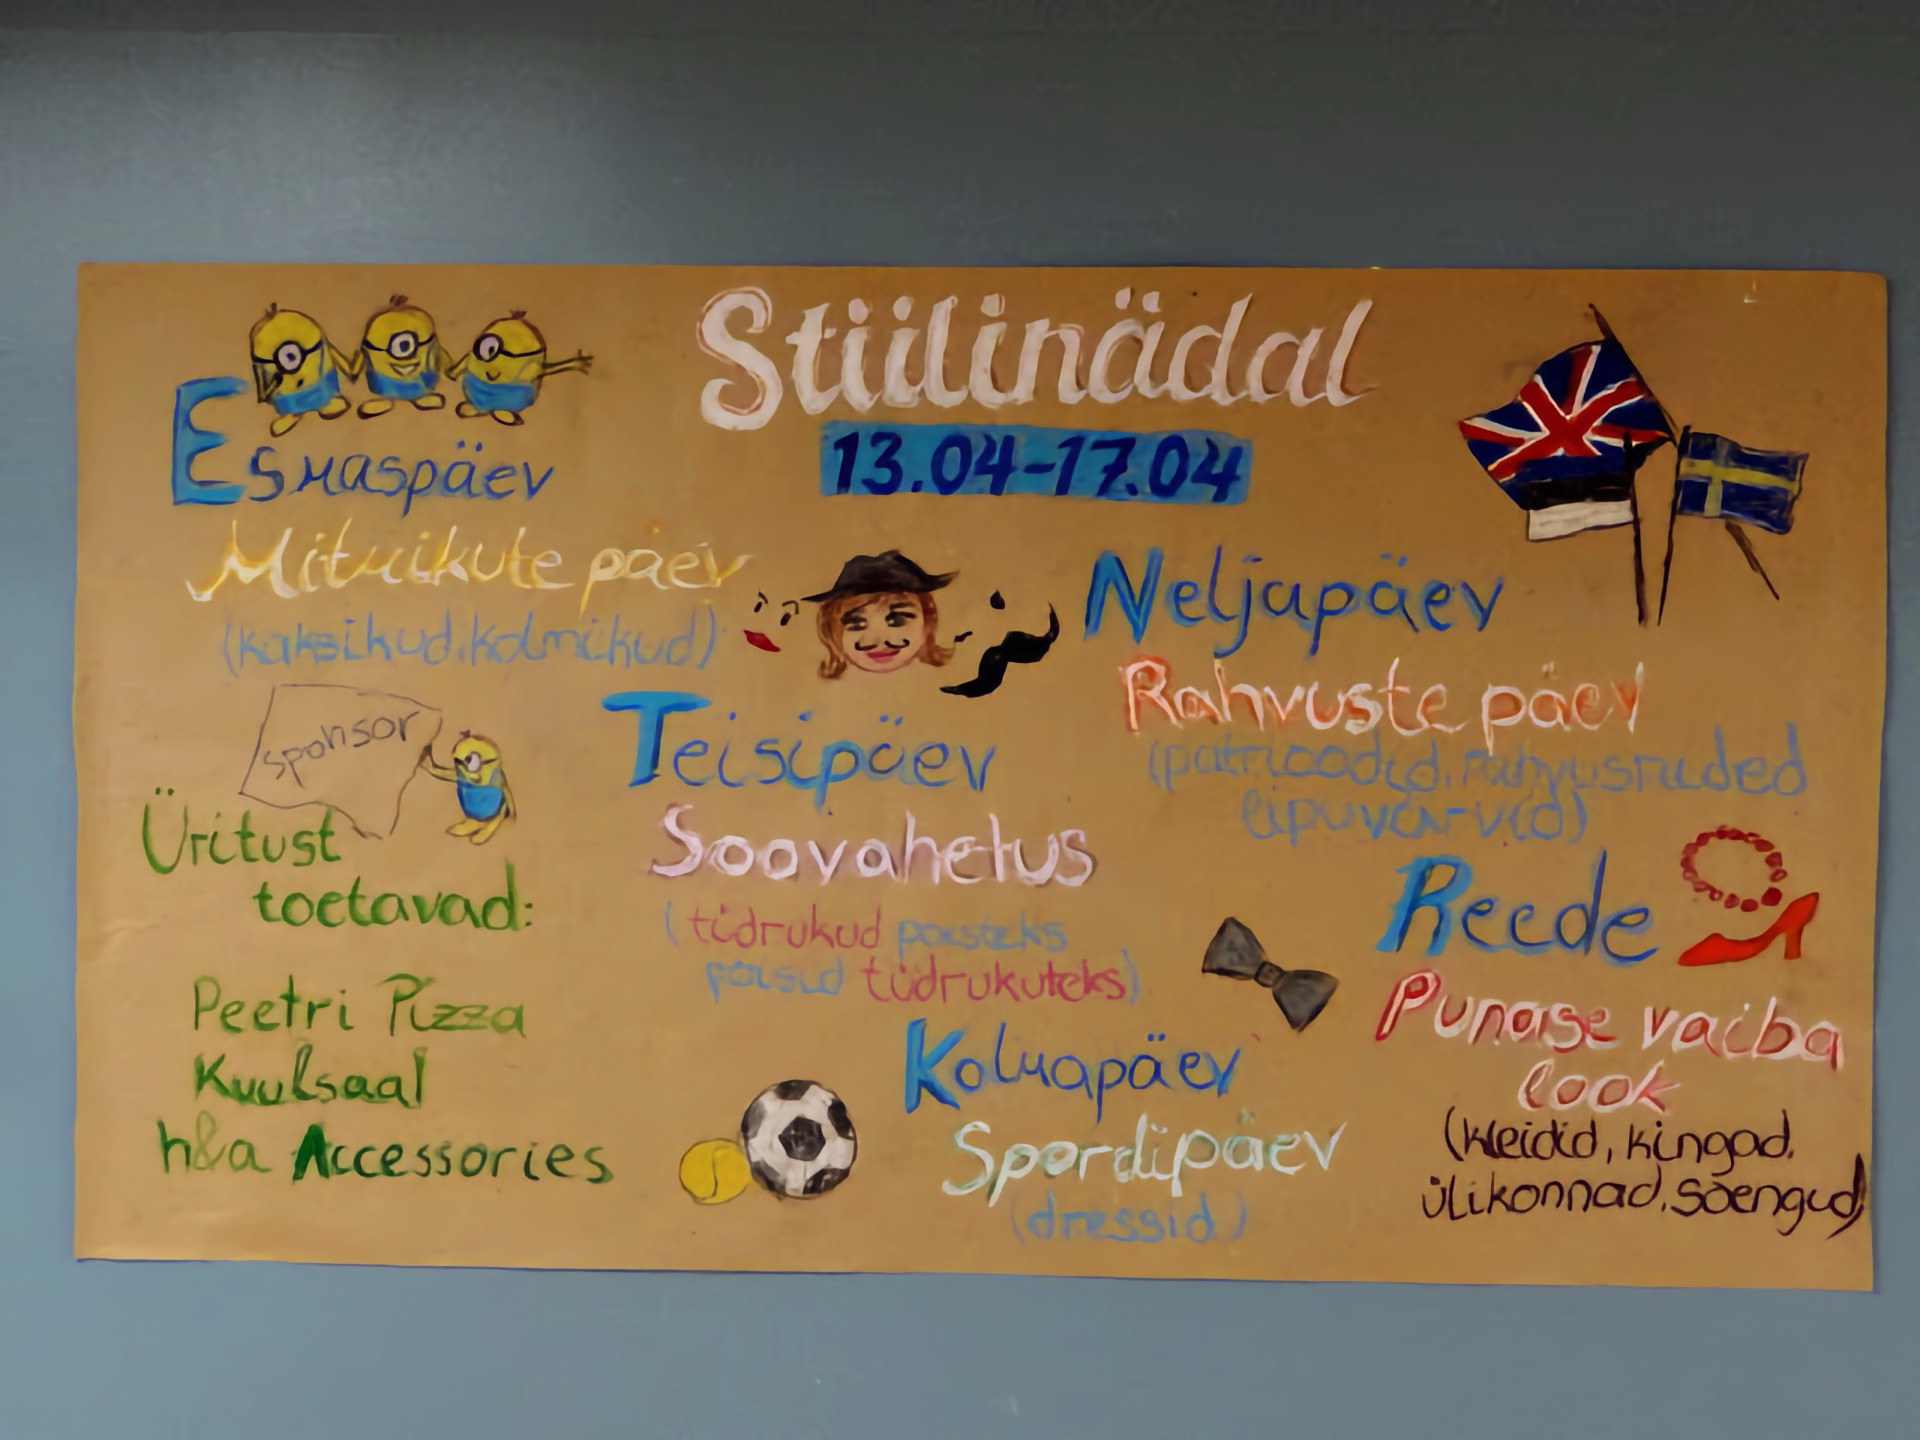 Stiilinädal
13.04-17.04
Esmaspäev
Mitmikute päev
(kaksikud, kolmikud)
sponsor
Üritust
toetavad:
Peetri Pizza
Kuulsaal
h&a Accessories
Teisipäev
Soovahetus
(tüdrukud poisteks
poisid tüdrukuteks)
Kolmapäev
Spordipäev
(dressid)
Neljapäev
Rahvuste päev
(patrioodid, rahvusriided
lipuvärvid)
Reede
Punase vaiba
look
(kleidid, kingad,
ülikonnad, soengud)